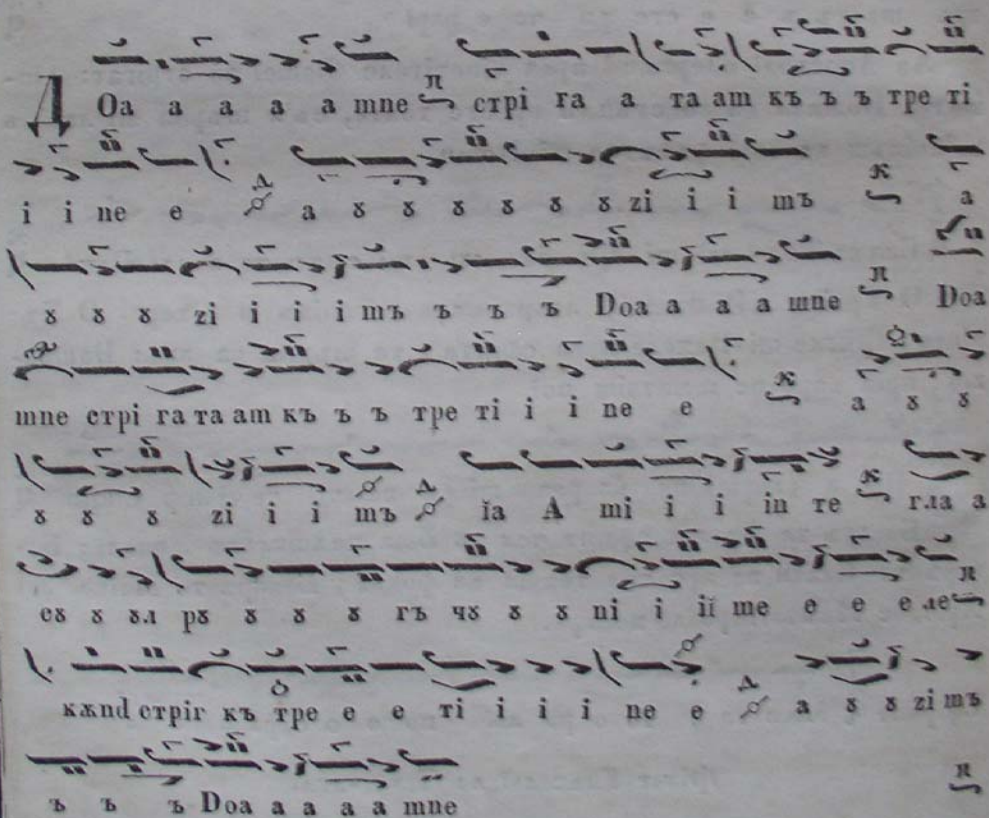 ДОа а а а а мпе стрі га а та ат къ ъ ъ тре ті
і і пе е а ꙋ ꙋ ꙋ ꙋ ꙋ ꙋ zі і і тъ а
ꙋ ꙋ ꙋ zі і і і тъ ъ ъ ъ Doa а а а мпе Doa
мпе стрі га та ат къ ъ ъ тре ті і і пе е а ꙋ ꙋ
ꙋ ꙋ ꙋ zі і і тъ їа А ті і і іп те гла а
сꙋ ꙋ ꙋл рꙋ ꙋ ꙋ ꙋ гъ чꙋ ꙋ ꙋ пі і її ме е е е ле
кѫпd стріг къ тре е е ті і і і пе е а ꙋ ꙋ zі тъ
ъ ъ ъ Doa а а а а мпе